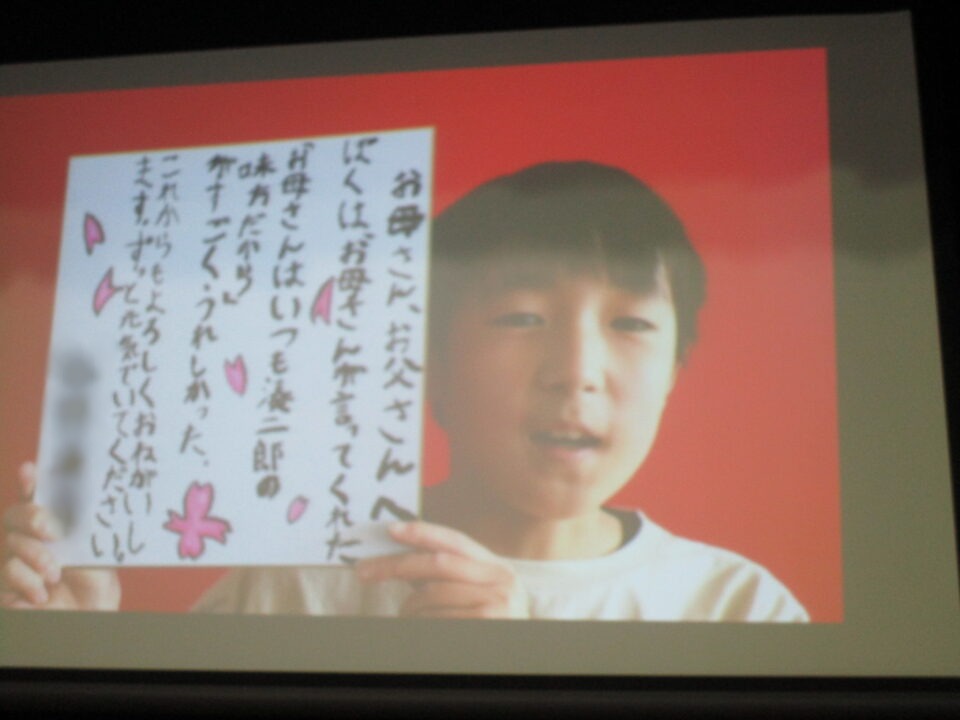 お母さん、お父さんへ
ぼくは、お母さんが言ってくれた
お母さんはいつも湊二郎の
味方だから」
がすごくうれしかった。
これからもよろしくおねがいし
ます。ずっと元気でいてください。